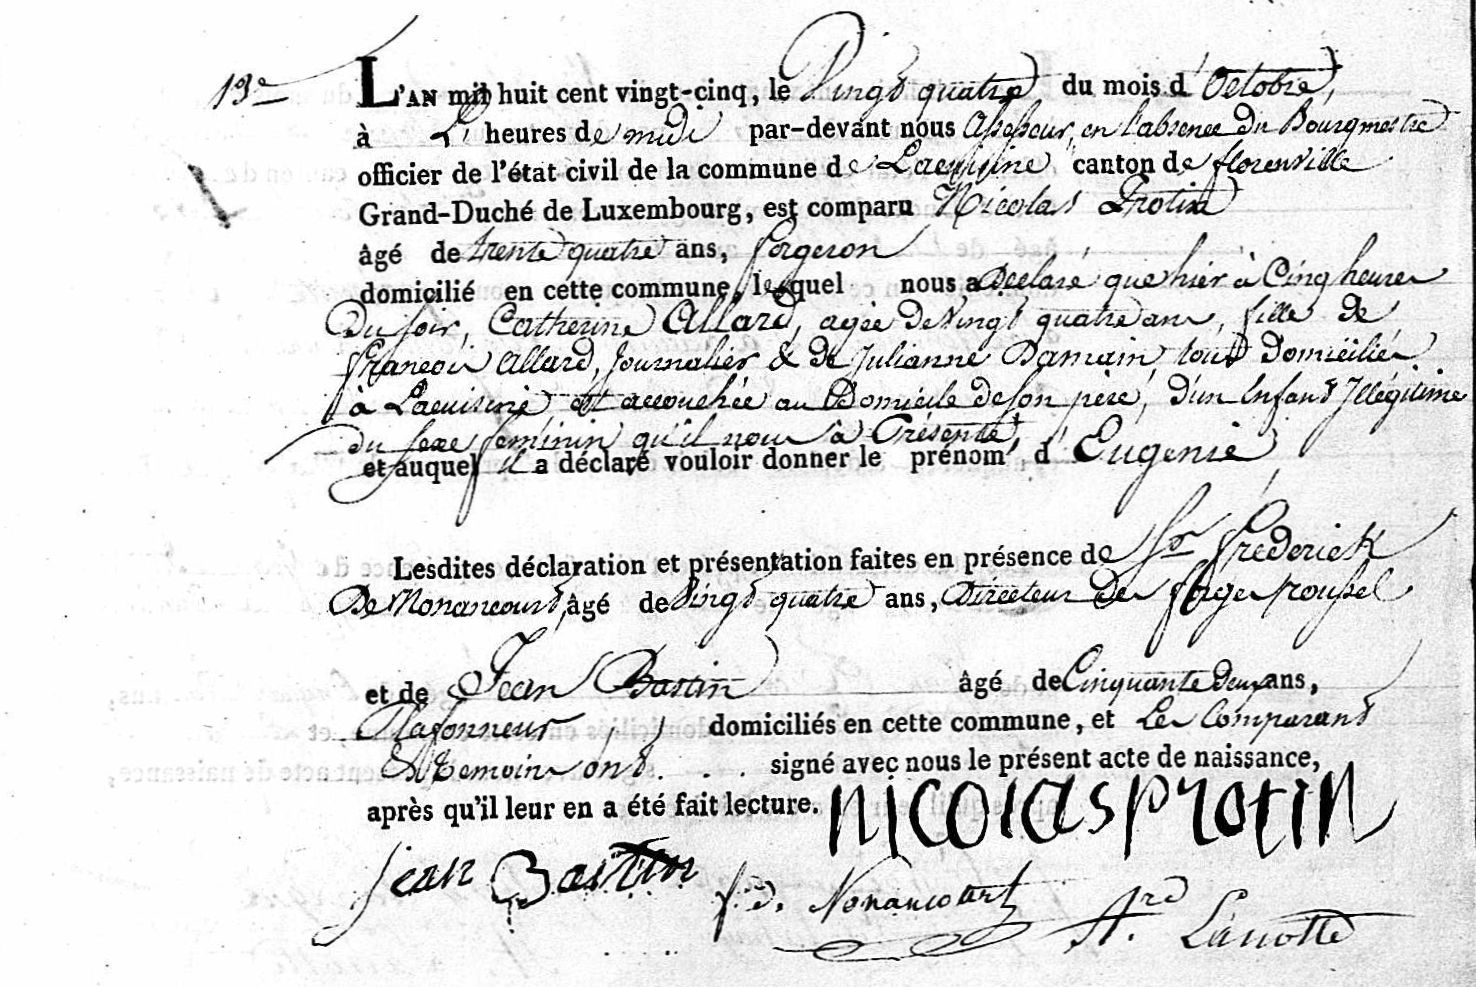 13e
L'AN mil huit cent vingt-cinq, le Vingt quatre du mois d'Octobre,
à heures de midi par-devant nous Assesseur, en l'absence du Bourgmestre
officier de l'état civil de la commune de Lacuisine canton de florenville
Grand-Duché de Luxembourg, est comparu Nicolas Protin
âgé de trente quatre ans, forgeron
domicilié en cette commune, lesquel nous a Déclaré que hier à Cinq heures
Du soir, Catherine Allard, agée de Vingt quatre ans, fille de
françois Allard, Journalier & de Julianne Damain, tous Domiciliés
à Lacuisine est accouchée au Domicile de son père, d'un Enfant Illégitime
du sexe feminin qu'il nous a Présenté,
et auquel il a déclaré vouloir donner le prénom d'Eugenie
Lesdites déclaration et présentation faites en présence de Sr frederick
De Nonancourt, âgé de Vingt quatre ans, Directeur Des forges roussel
et de Jean Bastin âgé de Cinquante Deux ans,
Plafonneur domiciliés en cette commune, et Les Comparant
& Temoins ont signé avec nous le présent acte de naissance,
après qu'il leur en a été fait lecture. nicolas protin
jean Bastin fd. Nonancourt
Ard. Lanotte